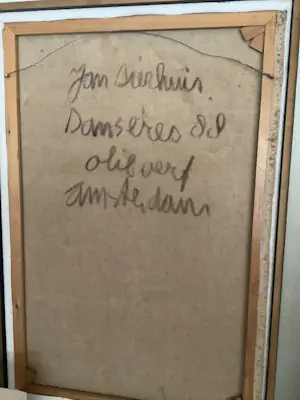 Jan Sierhuis.
Danseres 88
olieverf
amsterdam